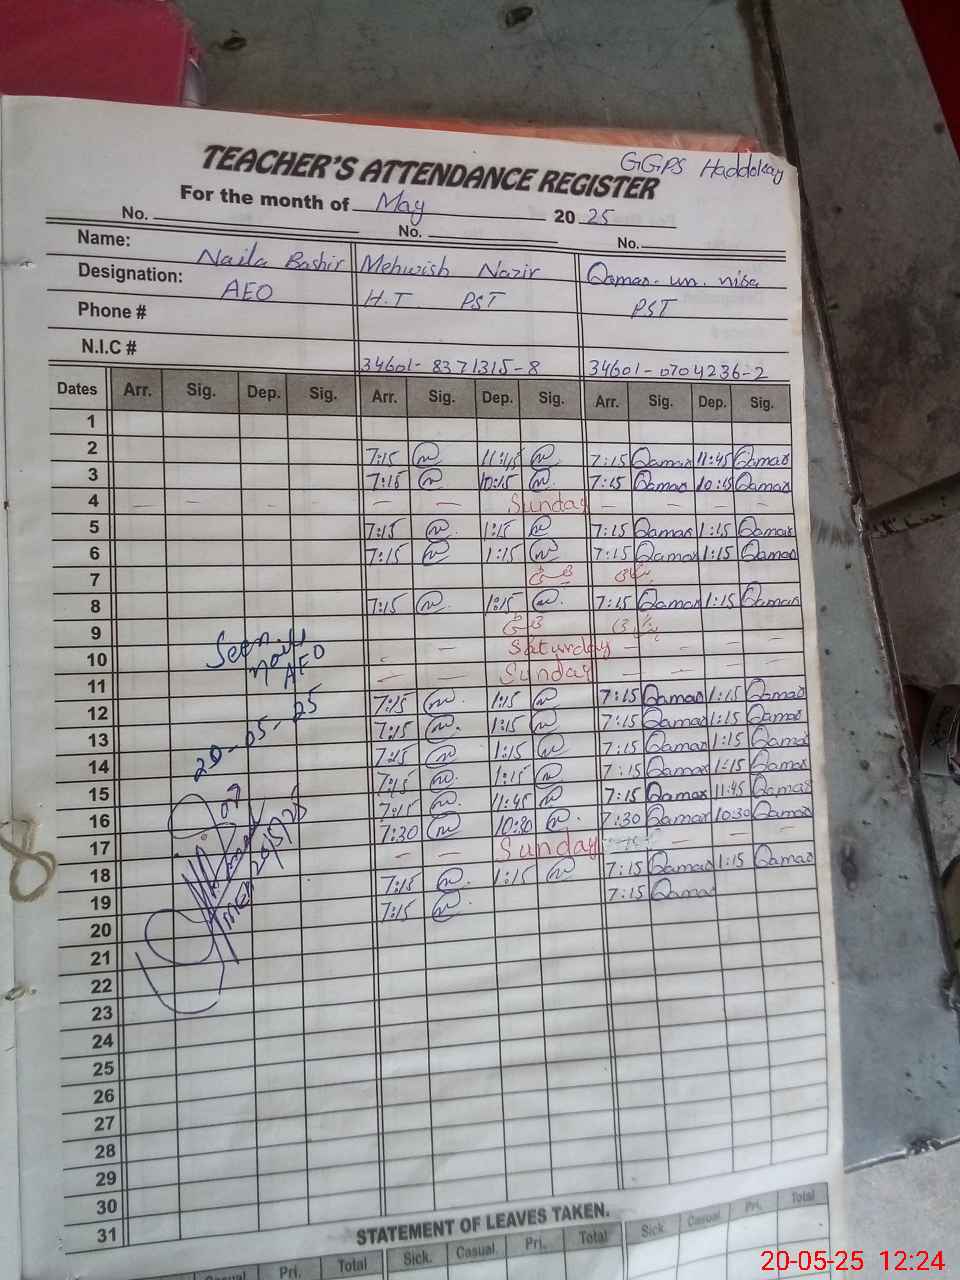 GGPS Haddokay
TEACHER'S ATTENDANCE REGISTER
For the month of May 2025
No. No. No.
Name: Naila Bashir Mehwish Nazir Qamar-un-nisa
Designation: AEO H.T PST PST
Phone #
N.I.C # 34601-8371315-8 34601-0704236-2
Dates Arr. Sig. Dep. Sig. Arr. Sig. Dep. Sig. Arr. Sig. Dep. Sig.
1
2 7:15 11:45 7:15 Qamar 11:45 Qamar
3 7:15 10:15 7:15 Qamar 10:15 Qamar
4 — — — — — Sunday — — — —
5 7:15 1:15 7:15 Qamar 1:15 Qamar
6 7:15 1:15 7:15 Qamar 1:15 Qamar
7
8 7:15 1:15 7:15 Qamar 1:15 Qamar
9
10 — Saturday — — — —
11 — — Sunday — — — —
12 7:15 1:15 7:15 Qamar 1:15 Qamar
13 7:15 1:15 7:15 Qamar 1:15 Qamar
14 7:15 1:15 7:15 Qamar 1:15 Qamar
15 7:15 1:15 7:15 Qamar 1:15 Qamar
16 7:15 11:45 7:15 Qamar 11:45 Qamar
17 7:30 10:30 7:30 Qamar 10:30 Qamar
18 — — Sunday — — — —
19 7:15 1:15 7:15 Qamar 1:15 Qamar
20 7:15 7:15 Qamar
21
22
23
24
25
26
27
28
29
30
31
Seen
Naila
AEO
20-05-25
20/5/25
STATEMENT OF LEAVES TAKEN.
Casual Pri. Total Sick. Casual. Pri. Total Sick. Casual. Pri. Total
20-05-25 12:24